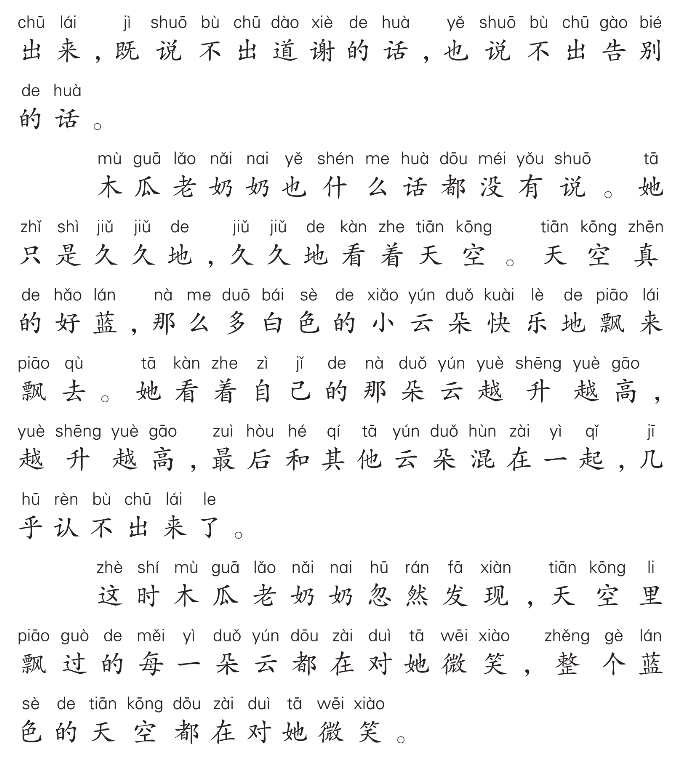 chū lái jì shuō bù chū dào xiè de huà yě shuō bù chū gào bié
出来，既说不出道谢的话，也说不出告别
de huà
的话。
mù guā lǎo nǎi nai yě shén me huà dōu méi yǒu shuō tā
木瓜老奶奶也什么话都没有说。她
zhǐ shì jiǔ jiǔ de jiǔ jiǔ de kàn zhe tiān kōng tiān kōng zhēn
只是久久地，久久地看着天空。天空真
de hǎo lán nà me duō bái sè de xiǎo yún duǒ kuài lè de piāo lái
的好蓝，那么多白色的小云朵快乐地飘来
piāo qù tā kàn zhe zì jǐ de nà duǒ yún yuè shēng yuè gāo
飘去。她看着自己的那朵云越升越高，
yuè shēng yuè gāo zuì hòu hé qí tā yún duǒ hùn zài yì qǐ jī
越升越高，最后和其他云朵混在一起，几
hū rèn bù chū lái le
乎认不出来了。
zhè shí mù guā lǎo nǎi nai hū rán fā xiàn tiān kōng li
这时木瓜老奶奶忽然发现，天空里
piāo guò de měi yì duǒ yún dōu zài duì tā wēi xiào zhěng gè lán
飘过的每一朵云都在对她微笑，整个蓝
sè de tiān kōng dōu zài duì tā wēi xiào
色的天空都在对她微笑。